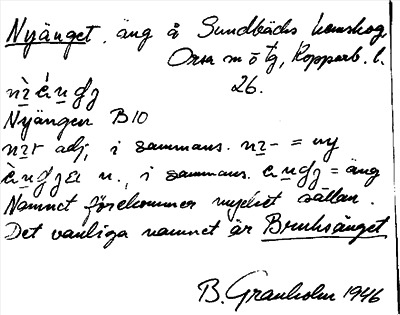 Nyänget, äng å Sundbäcks hemskog
Orsa m o tg, Kopparb. l.
26.
Nyängen B10
adj, i sammans. = ny
n., i sammans. = äng
Namnet förekommer mycket sällan.
Det vanliga namnet är Bruksänget
B. Granholm 1946